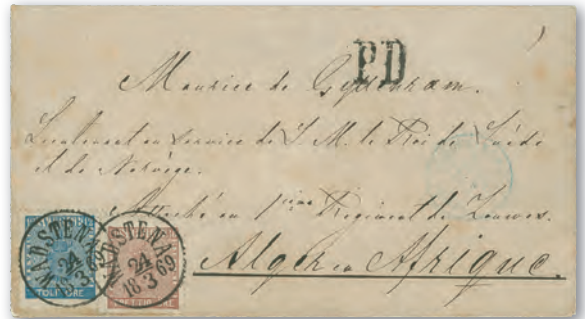 PD
Maurice de Gyllenram.
Lieutenant en Service de S. M. le Roi de Suède
et de Norvège.
Attaché au 1ier Regiment de Zouaves.
Alger en Afrique.
WADSTENA
24
18 3 69
WADSTENA
24
18 3 69
TOLF ÖRE
TRETTIO ÖRE